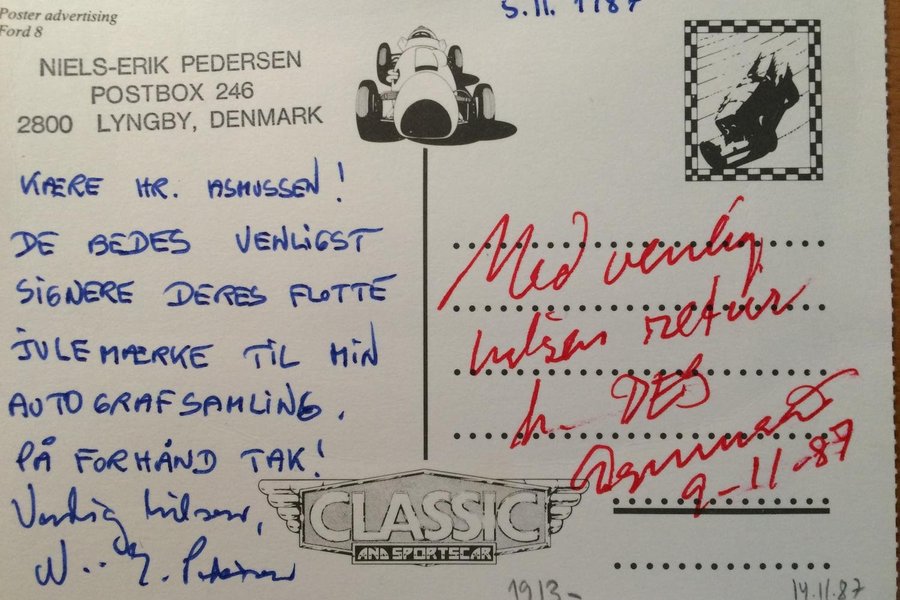 Poster advertising
Ford 8
5.11.1987
NIELS-ERIK PEDERSEN
POSTBOX 246
2800 LYNGBY, DENMARK
KÆRE HR. ASMUSSEN!
DE BEDES VENLIGST
SIGNERE DERES FLOTTE
JULEMÆRKE TIL MIN
AUTOGRAFSAMLING.
PÅ FORHÅND TAK!
Venlig hilsen,
N.-E. Pedersen
Med venlig
hilsen retur
DES
Asmussen
9-11-87
CLASSIC
AND SPORTSCAR
1913-
14.11.87